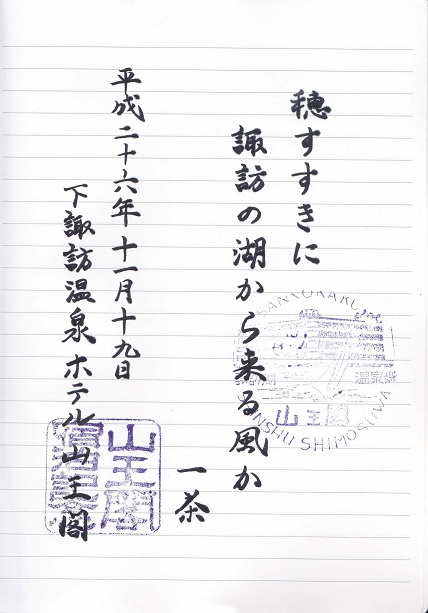 穂すすきに
諏訪の湖から来る風か
一茶
平成二十六年十一月十九日
下諏訪温泉ホテル山王閣
SANNOKAKU
山王閣
SHINSHU SHIMOSUWA
山王閣